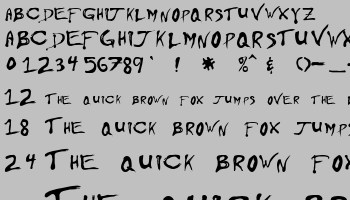 ABCDEFGHIJKLMNOPQRSTUVWXYZ
ABCDEFGHIJKLMNOPQRSTUVWX
0123456789` ! * %^ & ()-_
12 THE QUICK BROWN FOX JUMPS OVER THE
18 THE QUICK BROWN FOX JUMPS
24 THE QUICK BROWN FOX